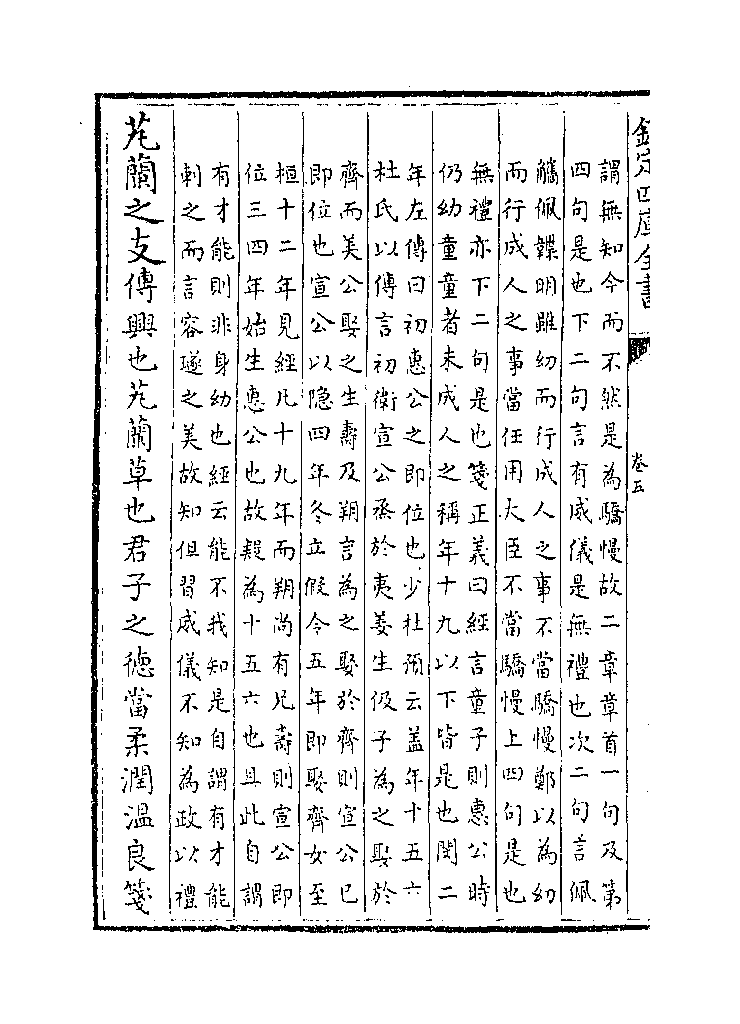 欽定四庫全書
卷五
謂無知今而不然是為驕慢故二章章首一句及第
四句是也下二句言有威儀是無禮也次二句言佩
觿佩韘明雖幼而行成人之事不當驕慢鄭以為幼
而行成人之事當任用大臣不當驕慢上四句是也
無禮亦下二句是也箋正義曰經言童子則惠公時
仍幼童童者未成人之稱年十九以下皆是也閔二
年左傳曰初惠公之即位也少杜預云盖年十五六
杜氏以傳言初衛宣公烝於夷姜生伋子為之娶於
齊而美公娶之生壽及朔言為之娶於齊則宣公已
即位也宣公以隐四年冬立假令五年即娶齊女至
桓十二年見經凡十九年而朔尚有兄壽則宣公即
位三四年始生惠公也故疑為十五六也且此自謂
有才能則非身幼也經云能不我知是自謂有才能
刺之而言容璲之美故知但習威儀不知為政以禮
芄蘭之支傳興也芄蘭草也君子之德當柔潤温良箋